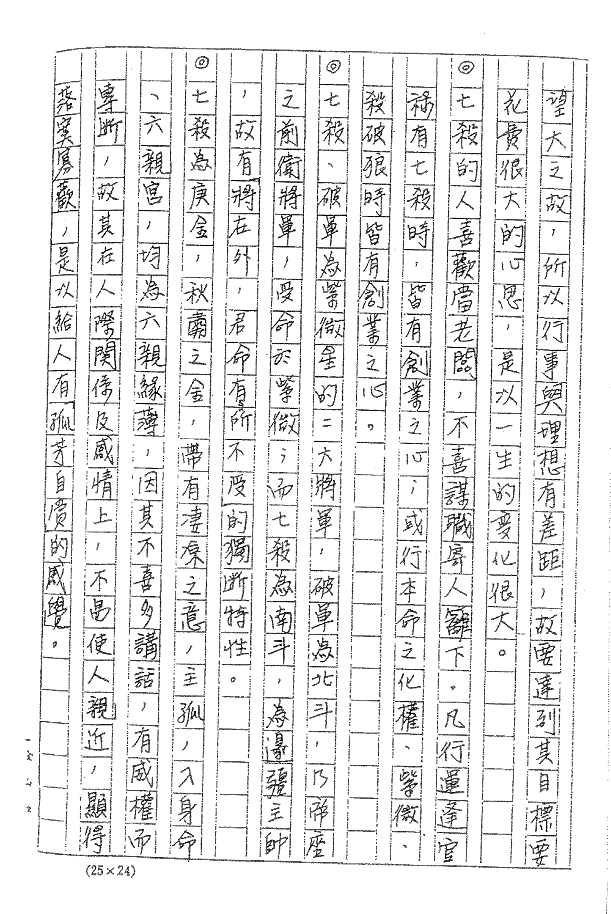 望大之故，所以行事與理想有差距，故要達到其目標要
花費很大的心思，是以一生的變化很大。
◎七殺的人喜歡當老闆，不喜謀職寄人籬下。凡行運逢官
祿有七殺時，皆有創業之心；或行本命之化權、紫微、
殺破狼時皆有創業之心。
◎七殺、破軍為紫微星的二大將軍，破軍為北斗，乃帝座
之前衛將軍，受命於紫微；而七殺為南斗，為邊疆主帥
，故有將在外，君命有所不受的獨斷特性。
◎七殺為庚金，秋霜之金，帶有淒涼之意，主孤，入身命
、六親宮，均為六親緣薄，因其不喜多講話，有威權而
專斷，故其在人際關係及感情上，不易使人親近，顯得
落寞寡歡，是以給人有孤芳自賞的感覺。
(25×24)